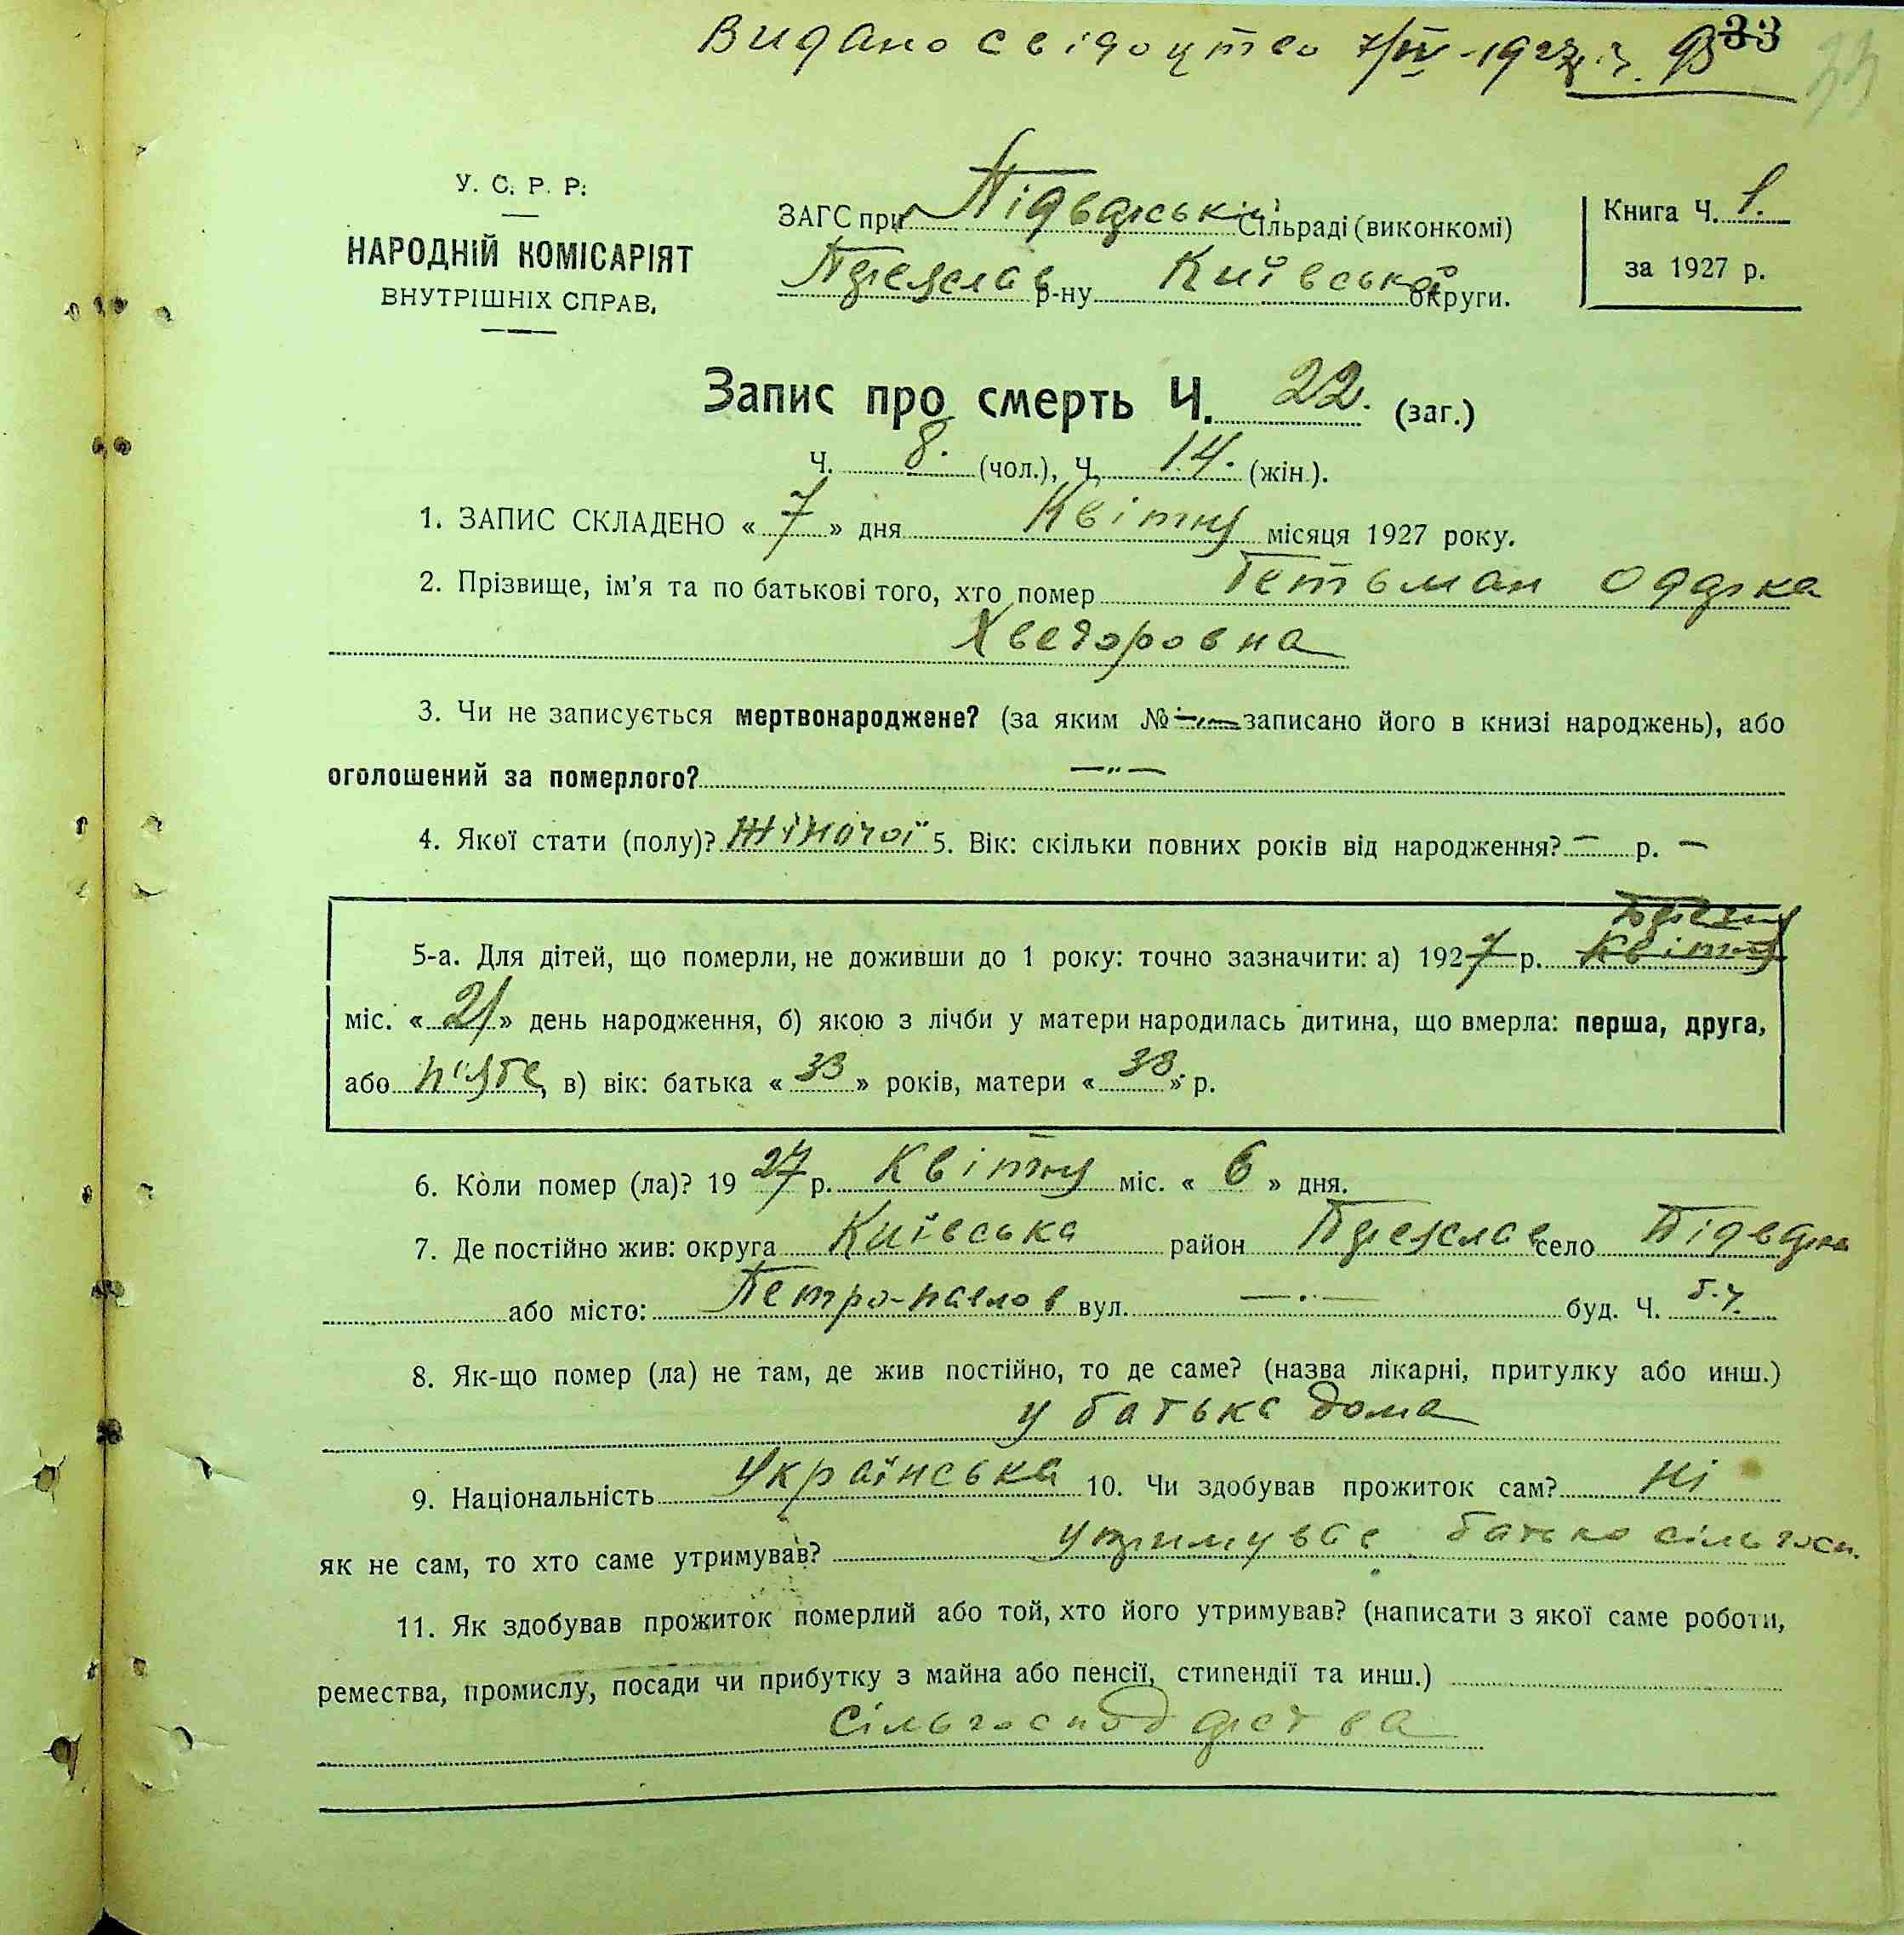 Видано свідоцтво 7/IV-1927 р. 33
У. С. Р. Р.
НАРОДНІЙ КОМІСАРІЯТ
ВНУТРІШНІХ СПРАВ.
ЗАГС при Підварській Сільраді (виконкомі)
Переяслав р-ну Київської округи.
Книга Ч. 1.
за 1927 р.
Запис про смерть Ч. 22. (заг.)
Ч. 8. (чол.), Ч. 14. (жін.).
1. ЗАПИС СКЛАДЕНО « 7 » дня Квітня місяця 1927 року.
2. Прізвище, ім'я та по батькові того, хто помер Гетьман Одарка
Хведоровна
3. Чи не записується мертвонароджене? (за яким № — записано його в книзі народжень), або
оголошений за померлого? —„—
4. Якої стати (полу)? Жіночої 5. Вік: скільки повних років від народження? — р. —
Березня
5-а. Для дітей, що померли, не доживши до 1 року: точно зазначити: а) 1927 р. Квітня
міс. « 21 » день народження, б) якою з лічби у матери народилась дитина, що вмерла: перша, друга,
або п'яте, в) вік: батька « 33 » років, матери « 38 » р.
6. Коли помер (ла)? 19 27 р. Квітня міс. « 6 » дня.
7. Де постійно жив: округа Київська район Переяслав село Підварка
або місто: Петро-павлов вул. —·— буд. Ч. б.ч.
8. Як-що помер (ла) не там, де жив постійно, то де саме? (назва лікарні, притулку або инш.)
у батька дома
9. Національність Українська 10. Чи здобував прожиток сам? Ні
як не сам, то хто саме утримував? утримував батько сільгосп.
11. Як здобував прожиток померлий або той, хто його утримував? (написати з якої саме роботи,
ремества, промислу, посади чи прибутку з майна або пенсії, стипендії та инш.)
Сільгосподарства